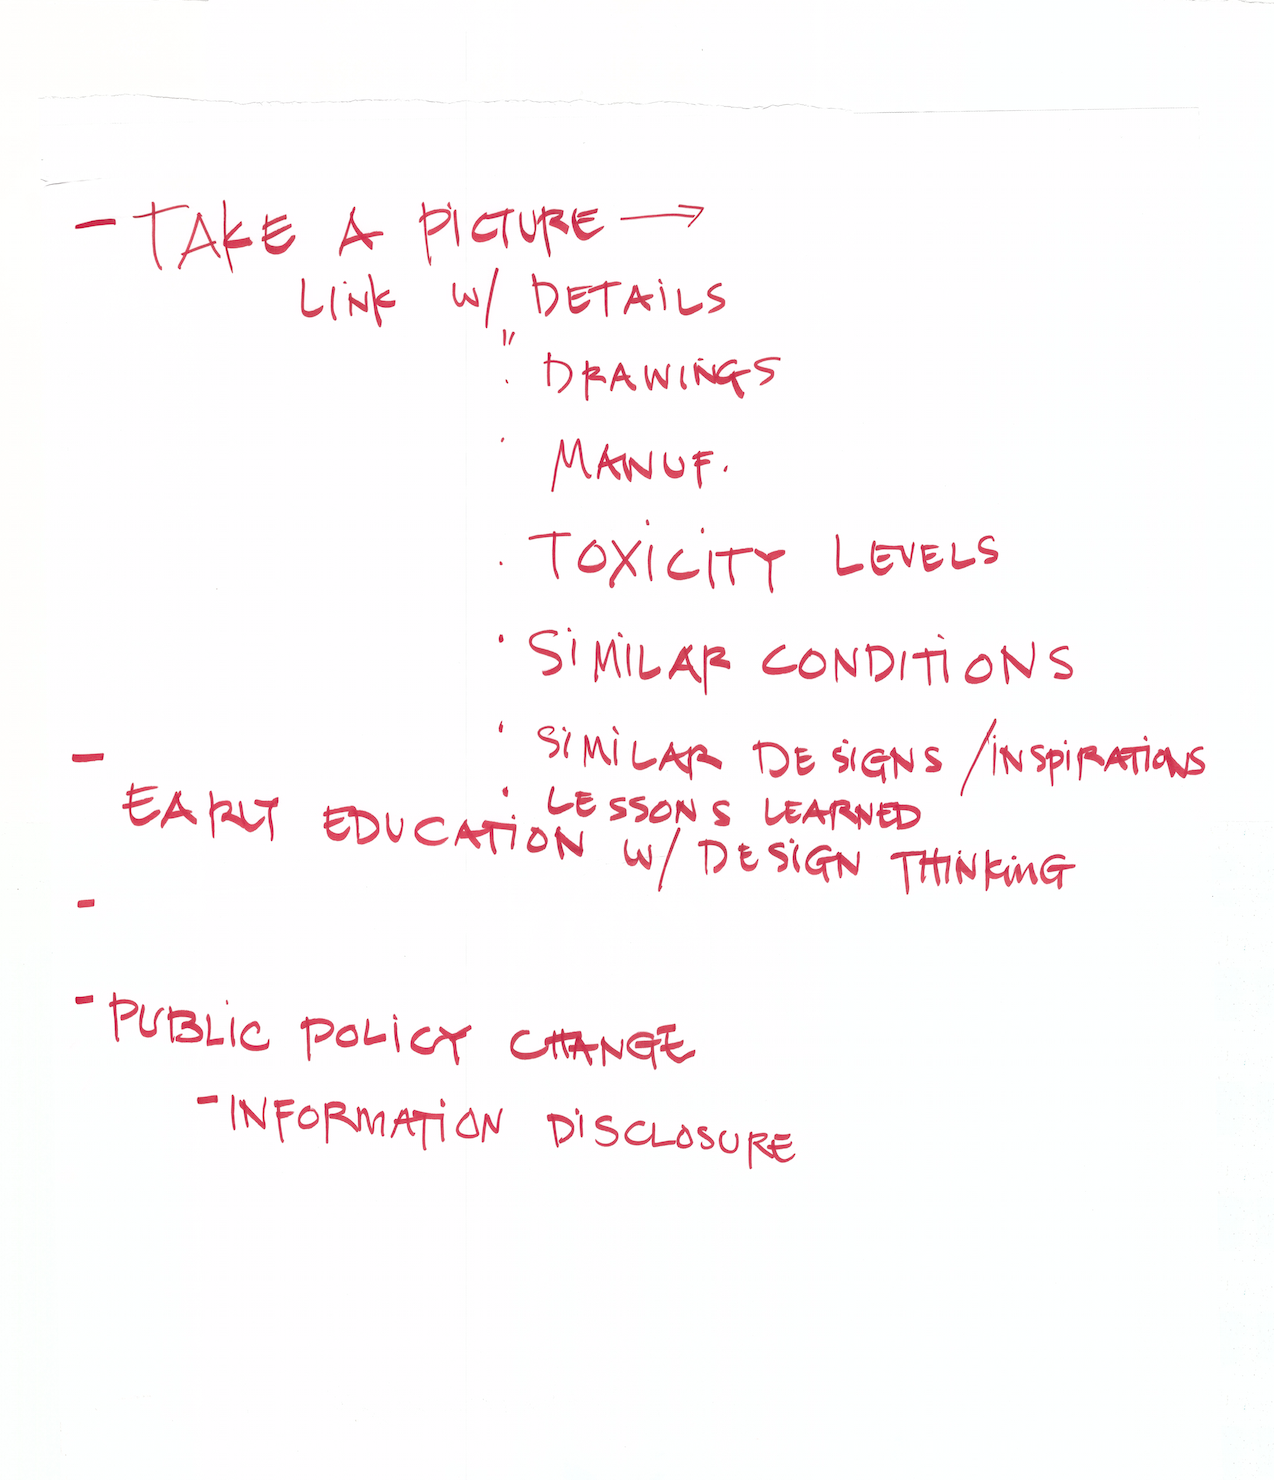 - TAKE A PICTURE →
LINK W/ DETAILS
"
· DRAWINGS
· MANUF.
· TOXICITY LEVELS
· SIMILAR CONDITIONS
· SIMILAR DESIGNS / INSPIRATIONS
· LESSONS LEARNED
- EARLY EDUCATION W/ DESIGN THINKING
-
- PUBLIC POLICY CHANGE
- INFORMATION DISCLOSURE